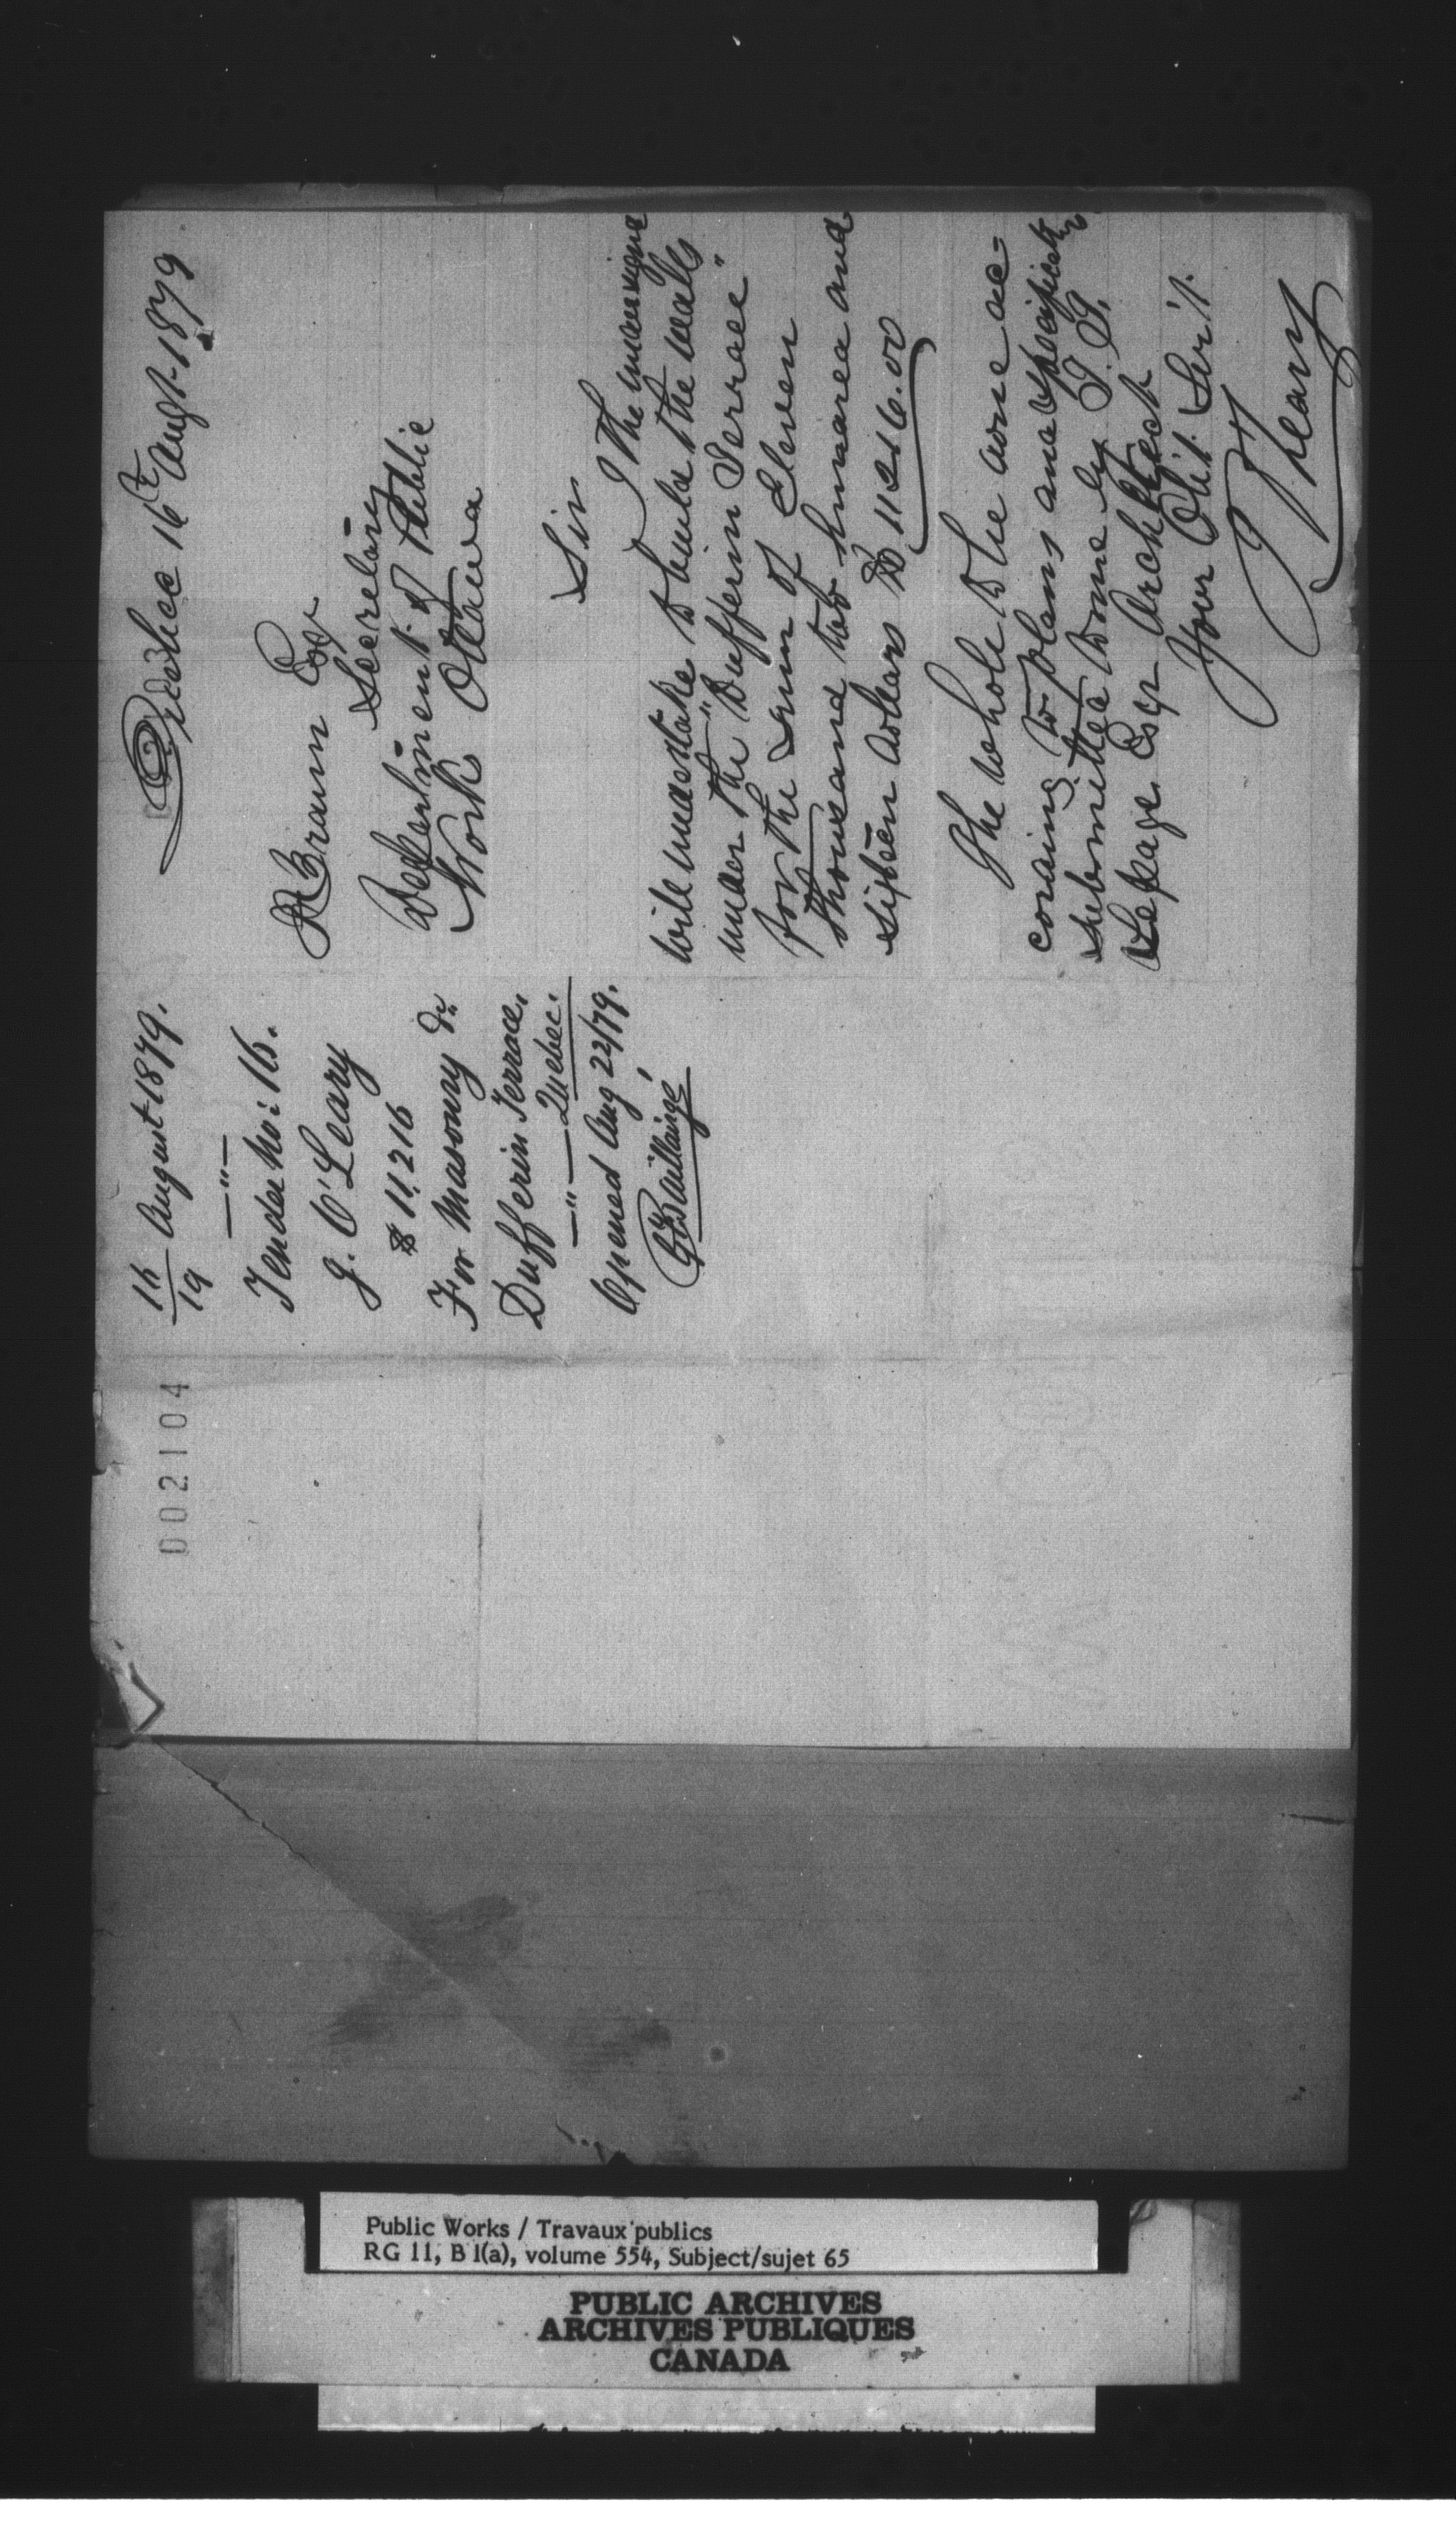 Quebec 16th Augt-1879
Braun Esq
Secretary
Department of Public
Work Ottawa
Sir
I The undersigned
will undertake to build the walls
under the "Dufferin Terrace"
for the sum of Eleven
thousand two hundred and
sixteen dollars $11216.00
The whole to be done ac-
cording to plans and specification
submitted done by
Lepage Esqr Architect
Your Obt. Servt.
J O'Leary
16/19 August 1879.
—"—
Tender No: 16.
J. O'Leary
$11,216
For Masonry &c
Dufferin Terrace,
—"— Quebec.
Opened Aug 22/79.
G.F. Baillairgé
002104
Public Works / Travaux publics
RG 11, B 1(a), volume 554, Subject/sujet 65
PUBLIC ARCHIVES
ARCHIVES PUBLIQUES
CANADA